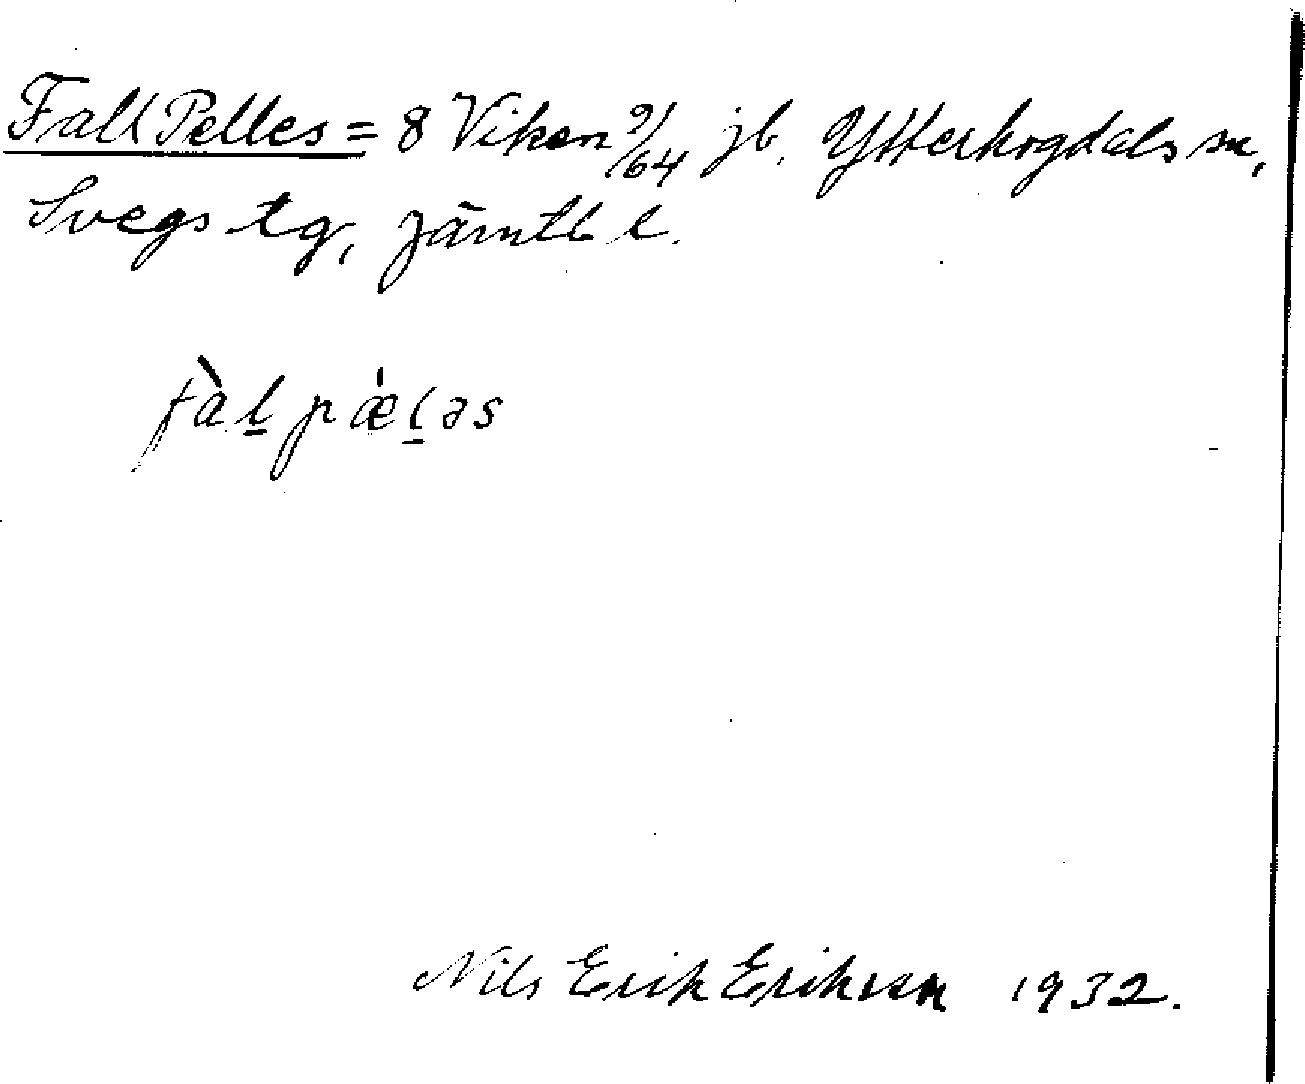 Fall Pelles = 8 Viken 9/64 jb. Ytterhogdals sn,
Svegs tg, Jämtl l.
fàl̲pæ̀l̲əs
Nils Erik Eriksson 1932.